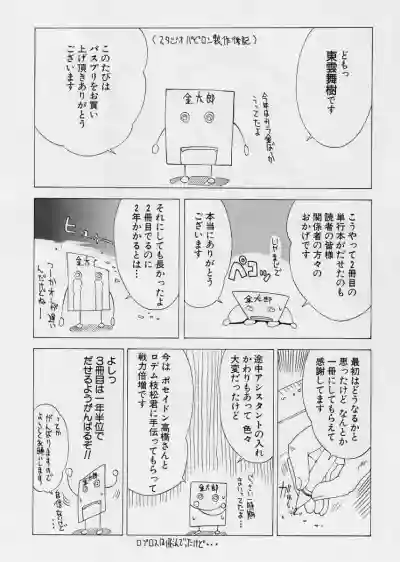 (スタジオパピロン製作後記)
どもっ
東雲舞樹です
このたびは
パスプリをお買い
上げ頂きありがとう
ございます
金太郎
こうやって2冊目の
単行本がだせたのも
読者の皆様
関係者の方々の
おかげです
本当に
ありがとう
ございます
ペコッ
金太郎
それにしても長かったよ
2冊目でるのに
2年かかるとは…
最初はどうなるかと
思ったけど なんとか
一冊にしてもらえて
感謝してます
途中アシスタントの入れ
かわりもあって 色々
大変だったけど
今は ポセイドン高橋さんと
ロデム枝松君に手伝ってもらって
戦力倍増です
金太郎
よしっ
3冊目は一年半位で
だせるようがんばるぞ!!
金太郎
ってか
がんばりますので
よろしくお願いします
ロプロスは休んでったけど・・・